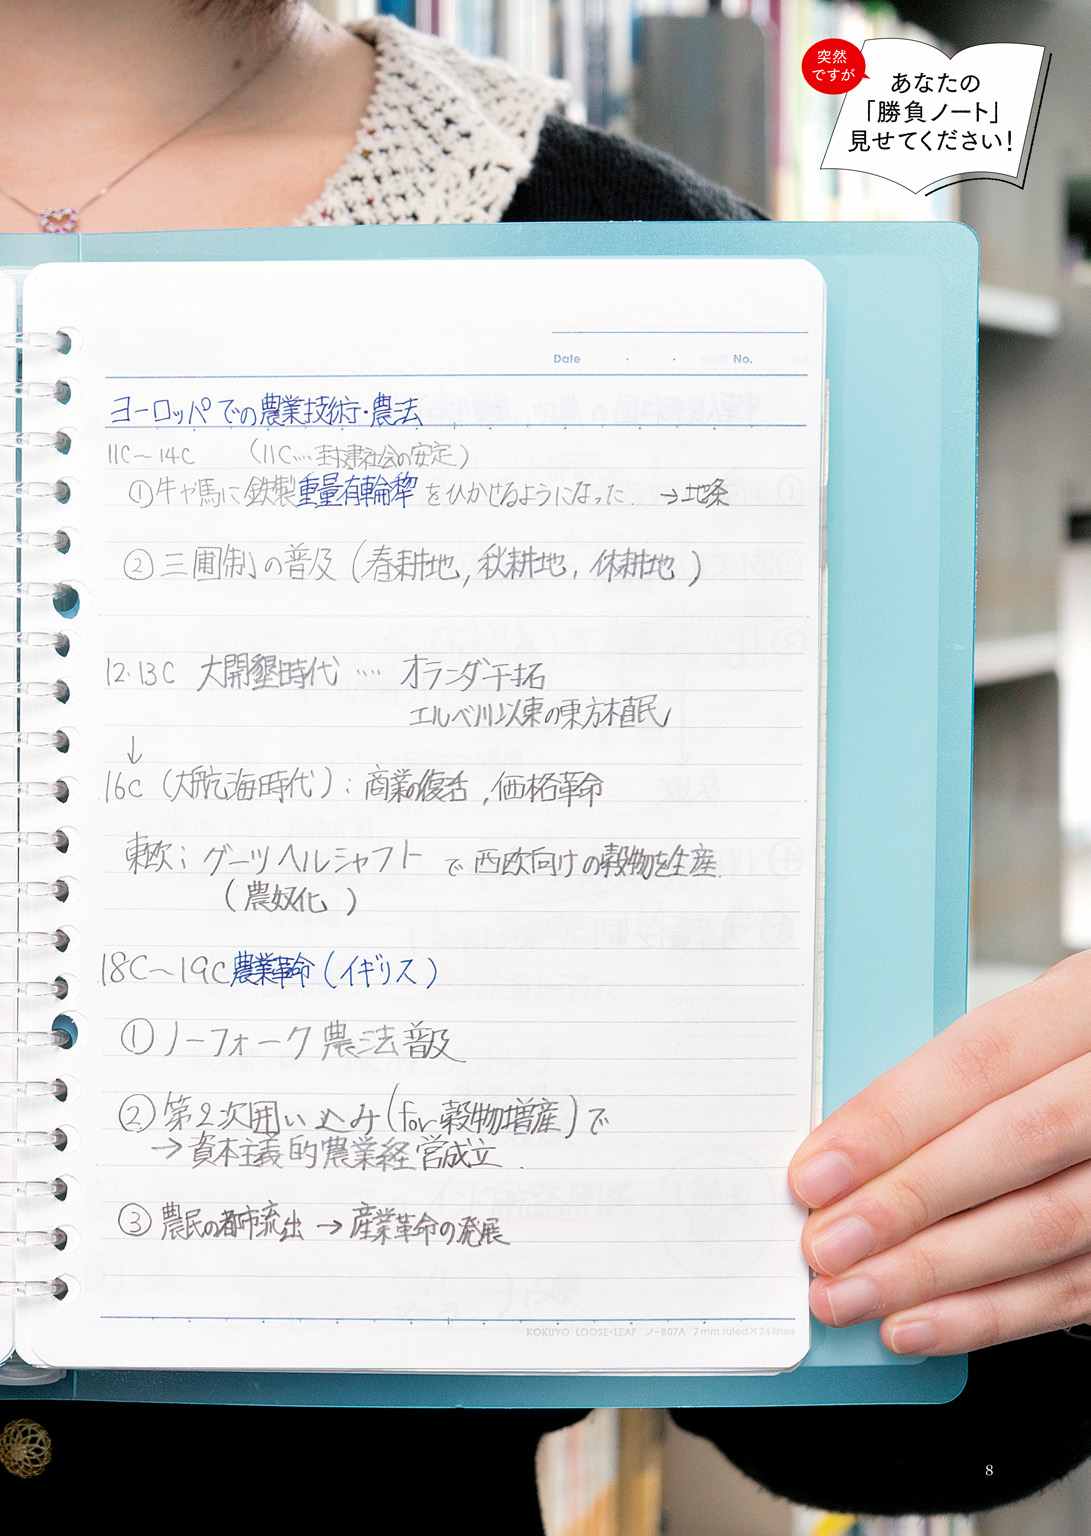 突然
ですが
あなたの
「勝負ノート」
見せてください!
Date ・ ・ No.
ヨーロッパでの農業技術・農法
11C〜14C （11C…封建社会の安定）
①牛や馬に鉄製重量有輪犂をひかせるようになった. →地条
②三圃制の普及（春耕地, 秋耕地, 休耕地）
12・13C 大開墾時代 …. オランダ干拓
エルベ川以東の東方植民
↓
16C（大航海時代）: 商業の復活, 価格革命
東欧; グーツヘルシャフト で 西欧向けの穀物を生産.
（農奴化）
18C〜19C農業革命（イギリス）
①ノーフォーク農法普及
②第2次囲い込み（for穀物増産）で
→資本主義的農業経営成立.
③農民の都市流出→産業革命の発展
KOKUYO LOOSE-LEAF ノ-807A 7mm ruled×24 lines
8